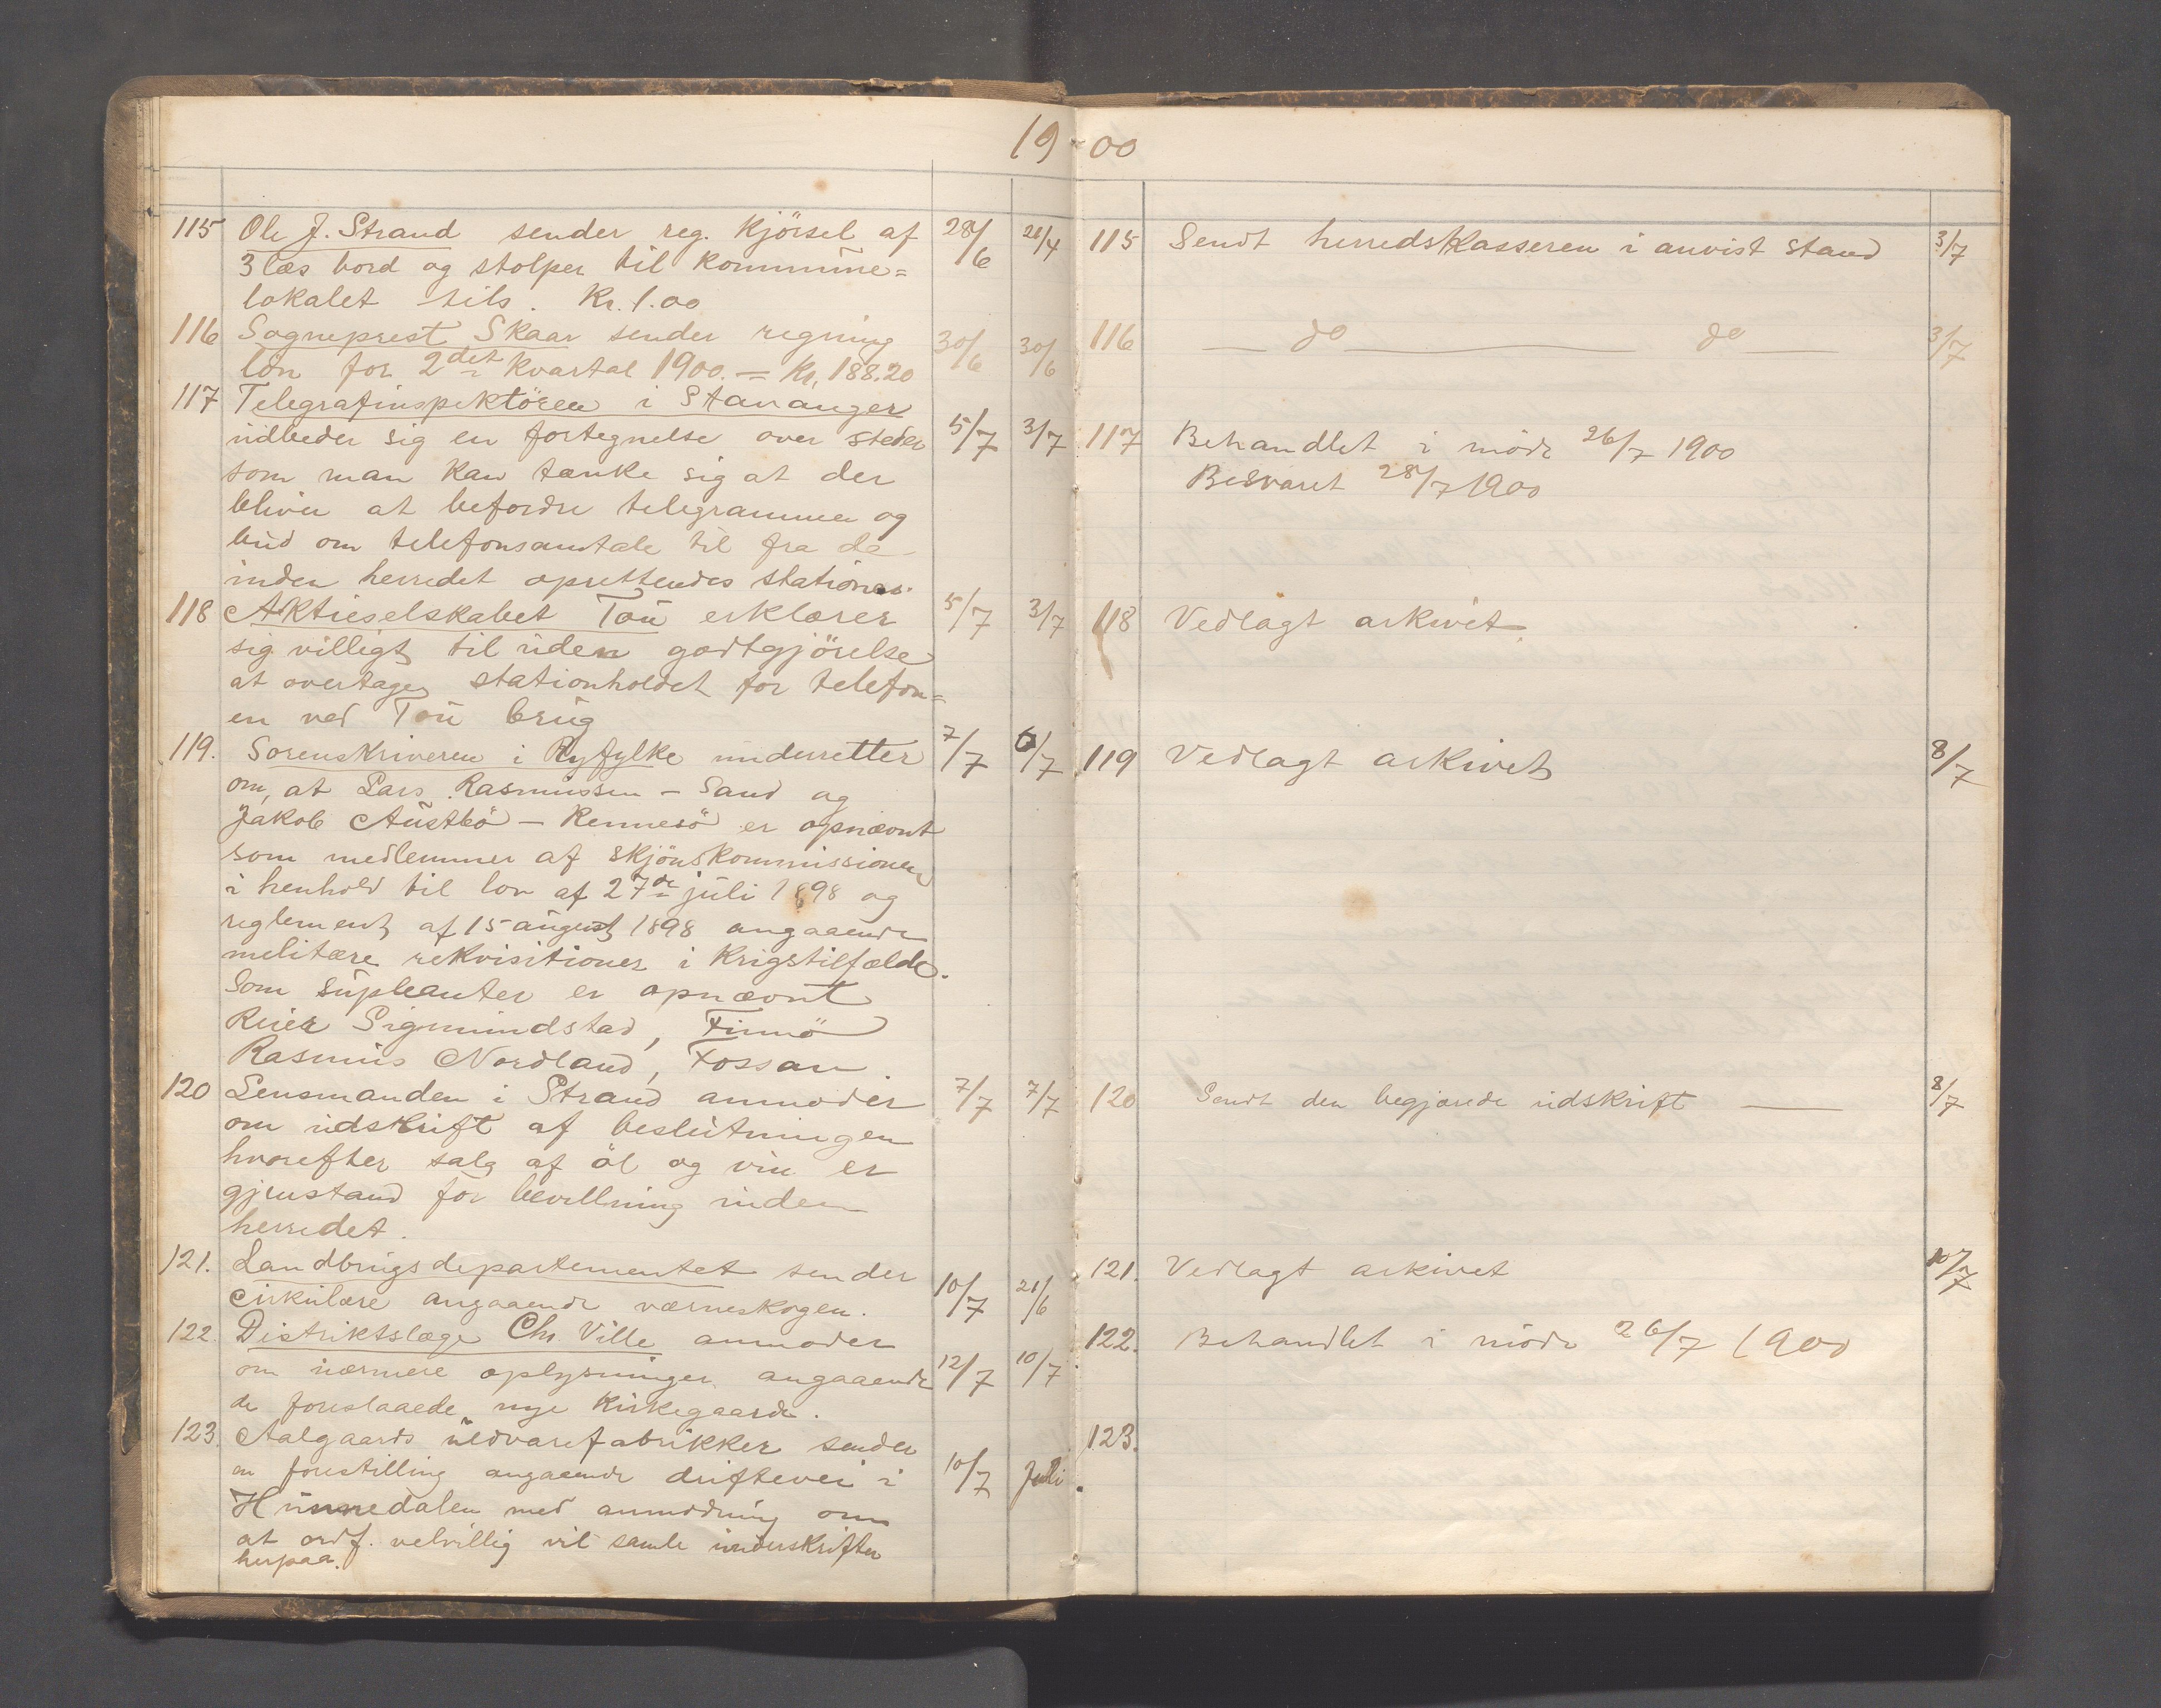 1900
115 Ole J. Strand sender reg. kjörsel af 28/6 21/4
3 læs bord og stolper til kommune=
lokalet tils. Kr. 1.00
116 Sogneprest Skaar sender regning 30/6 30/6
lön for 2det kvartal 1900. = Kr. 188.20
117 Telegrafinspektören i Stavanger
udbeder sig en fortegnelse over steder 5/7 3/7
som man kan tænke sig at der
bliver at befordre telegrammer og
bud om telefonsamtale til fra de
inden herredet oprettendes stationer.
118 Aktieselskabet Tou erklærer 5/7 3/7
sig villigt til uden godtgjörelse
at overtage stationholdet for telefon=
en ved Tou brug
119. Sorenskriveren i Ryfylke underretter 7/7 6/7
om, at Lars Rasmussen - Sand og
Jakob Austbö - Rennesö er opnævnt
som medlemmer af skjönskommissionen
i henhold til lov af 27de juli 1898 og
reglement af 15 august 1898 angaaende
militære rekvisitioner i krigstilfælde.
Som supleanter er opnævnt
Reier Sigmundstad, Finnö
Rasmus Nordland, Fossan.
120 Lensmanden i Strand anmoder 7/7 7/7
om udskrift af beslutningen
hvorefter salg af öl og vin er
gjenstand for bevillning inden
herredet.
121. Landbrugsdepartementet sender 10/7 21/6
cirkulære angaaende værneskogen.
122. Distriktslæge Chr. Ville anmoder
om nærmere oplysninger angaaende 12/7 10/7
de foreslaaede nye kirkegaarde.
123. Aalgaards uldvarefabrikker sender
en forestilling angaaende driftevei i 10/7 Juli
Hunnedalen med anmodning om
at ordf. velvillig vil samle underskrifter
herpaa.
115 Sendt herredskasseren i anvist stand 3/7
116 — do — do — 3/7
117 Behandlet i möde 26/7 1900
Besvaret 28/7 1900
118 Vedlagt arkivet.
119 Vedlagt arkivet 8/7
120 Sendt den begjærede udskrift — 8/7
121. Vedlagt arkivet 10/7
122. Behandlet i möde 26/7 1900
123.